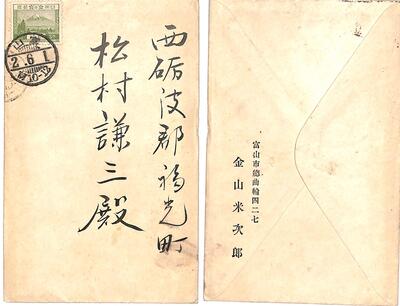 西砺波郡福光町
松村謙三殿
2.6.1
富山市總曲輪四二七
金山米次郎